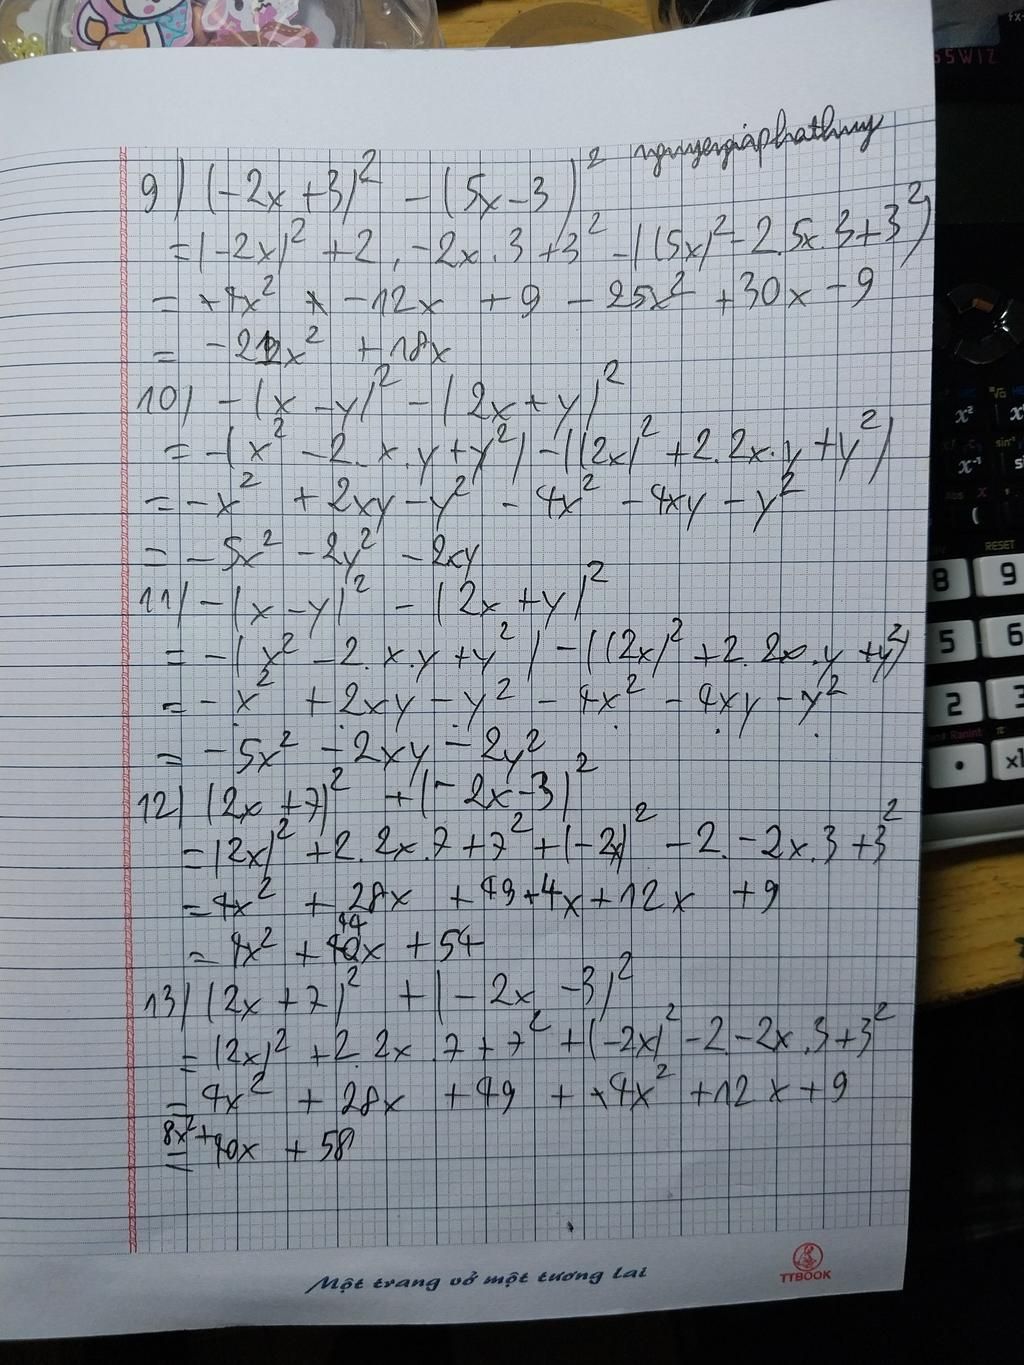 nguyengiaphathuy
9) (-2x+3)² - (5x-3)²
= (-2x)² + 2 . -2x.3 + 3² - ((5x)² - 2.5x.3+3²)
= +4x² -12x + 9 - 25x² + 30x - 9
= -21x² + 18x
10) -(x-y)² - (2x+y)²
= -(x² - 2.x.y+y²) - ((2x)² + 2.2x.y + y²)
= -x² + 2xy - y² - 4x² - 4xy - y²
= -5x² - 2y² - 2xy
11) -(x-y)² - (2x+y)²
= -(x² - 2.x.y + y²) - ((2x)² + 2.2x.y + y²)
= -x² + 2xy - y² - 4x² - 4xy - y²
= -5x² - 2xy - 2y²
12) (2x+7)² + (-2x-3)²
= (2x)² + 2.2x.7+7² + (-2x)² - 2.-2x.3+3²
= 4x² + 28x + 49+4x+12x + 9
= 4x² + 44x + 54
13) (2x+7)² + (-2x-3)²
= (2x)² + 2.2x.7+7² + (-2x)² - 2.-2x.3+3²
= 4x² + 28x + 49 + +4x² + 12x + 9
= 8x² + 40x + 58
Một trang vở một tương lai
TTBOOK
55WIZ
x²
x⁻¹
(
RESET
8 9
5 6
2 3
Ranint
.